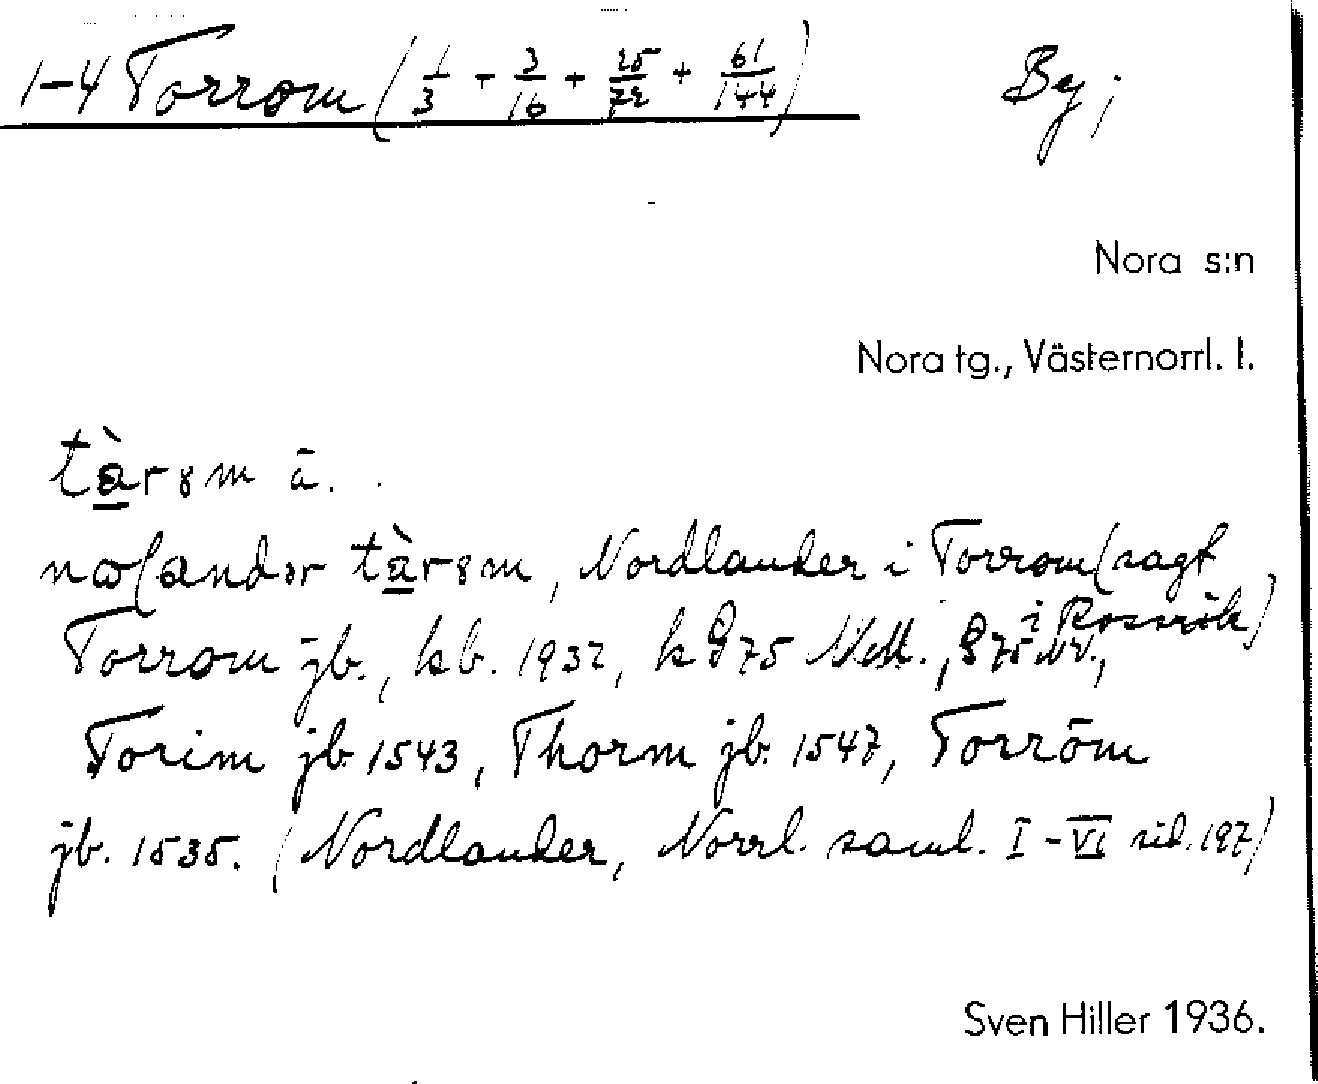 1-4 Torrom (1/3 + 3/16 + 25/72 + 61/144) By;
Nora s:n
Nora tg., Västernorrl. l.
tàrəm ā.
tàrəm, Nordlander i Torrom (sagt
i Rossvik)
Torrom jb., kb. 1932, k 975 Nedl., 975
Torim jb. 1543, Thorm jb. 1547, Torröm
jb. 1535. (Nordlander, Norrl. saml. I-VI sid. 197)
Sven Hiller 1936.